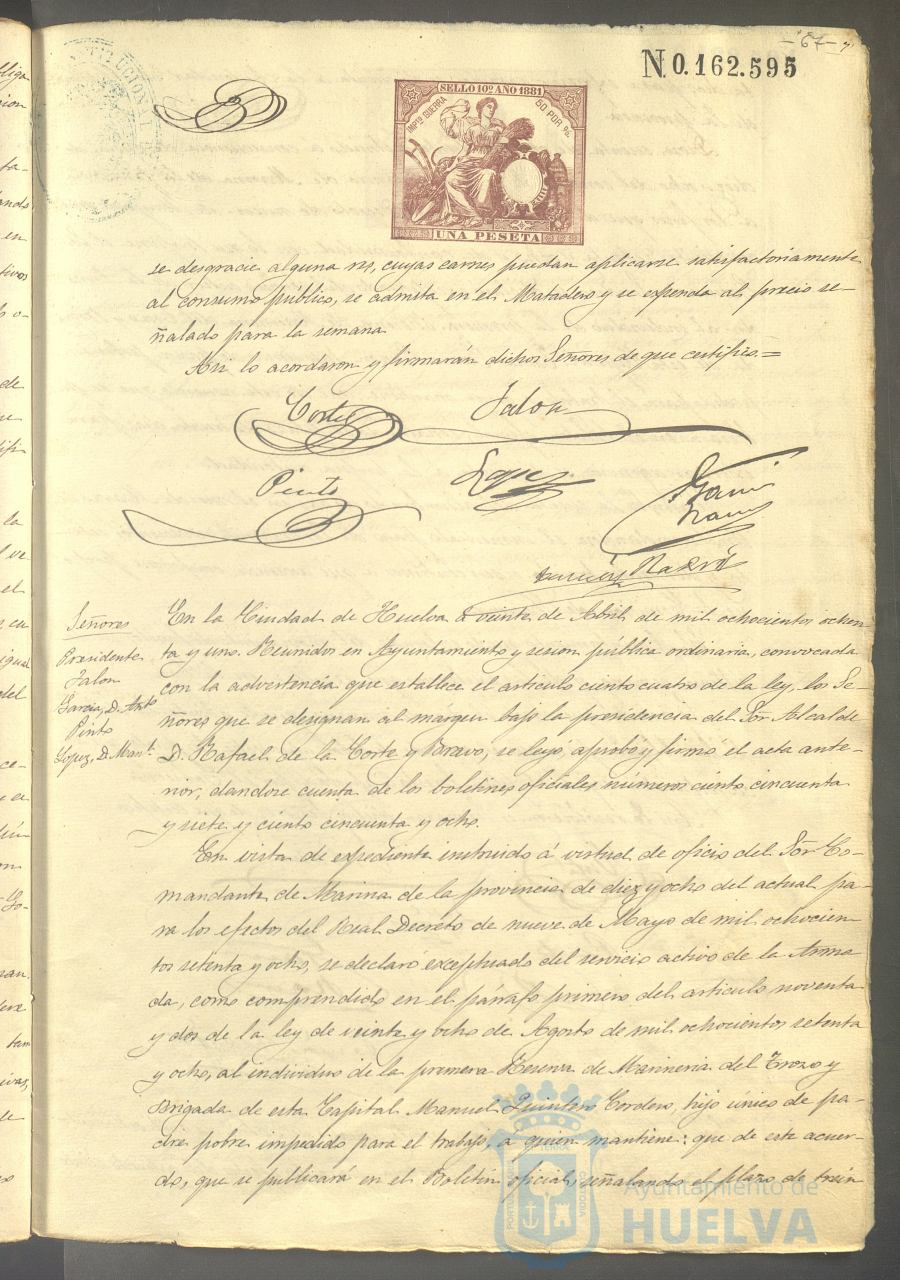 - 67 -
N.0.162.595
SELLO 10º AÑO 1881
IMPTO GUERRA
50 POR %
UNA PESETA
se desgracie alguna res, cuyas carnes puedan aplicarse satisfactoriamente
al consumo público, se admita en el Matadero y se expenda al precio se-
ñalado para la semana.
Asi lo acordaron y firmarán dichos Señores de que certifico.=
Corte
Jalon
Pinto
Lopez
Garcia
Señores
Presidente
Jalon
Garcia, D. Anto
Pinto
Lopez, D. Manl.
En la Ciudad de Huelva a veinte de Abril de mil ochocientos ochen-
ta y uno. Reunidos en Ayuntamiento y sesion pública ordinaria, convocada
con la advertencia que establece el articulo ciento cuatro de la ley, los Se-
ñores que se designan al márgen bajo la presidencia del Sor. Alcalde
D. Rafael de la Corte y Bravo, se leyó aprobó y firmó el acta ante-
rior, dandose cuenta de los boletines oficiales números ciento cincuenta
y siete y ciento cincuenta y ocho.
En vista de expediente instruido á virtud de oficio del Sor. Co-
mandante de Marina de la provincia de diez y ocho del actual pa-
ra los efectos del Real Decreto de nueve de Mayo de mil ochocien-
tos setenta y ocho, se declaró exceptuado del servicio activo de la Arma-
da, como comprendido en el párrafo primero del articulo noventa
y dos de la ley de veinte y ocho de Agosto de mil ochocientos setenta
y ocho, al individuo de la primera Reserva de Marineria del Trozo y
Brigada de esta Capital Manuel Quintero Cordero, hijo único de pa-
dre pobre impedido para el trabajo, a quien mantiene: que de este acuer-
do, que se publicará en el Boletin oficial, señalando el plazo de trein
Ayuntamiento de
HUELVA